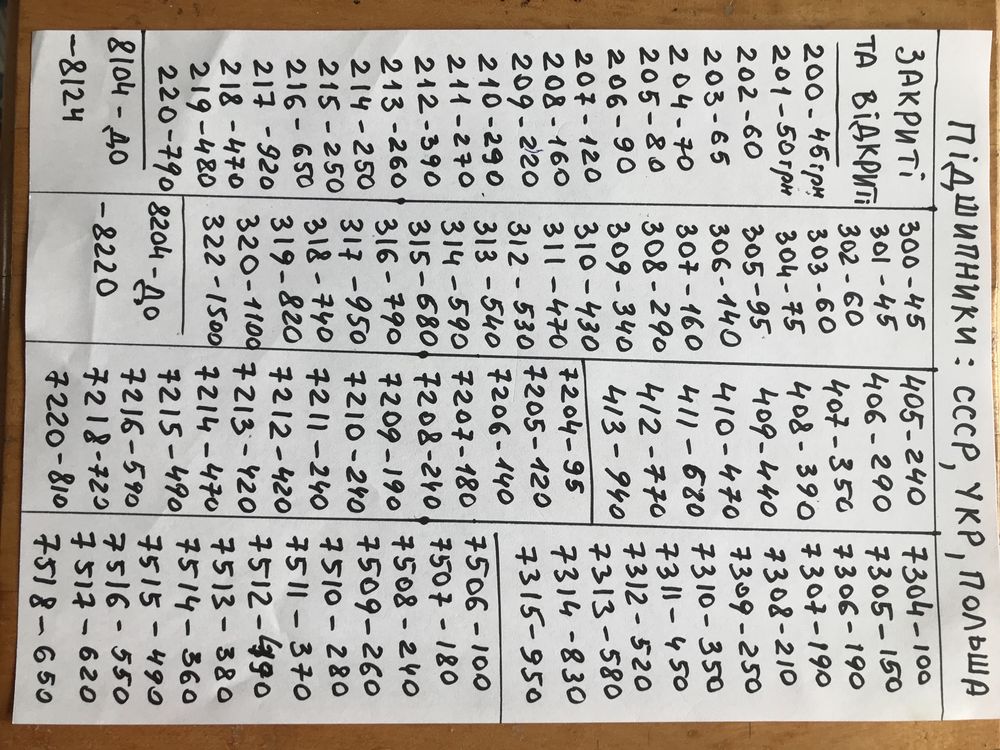 ПіДШИПНИКИ: СССР, УКР, ПОЛЬША
ЗАКРИТі
ТА ВіДКРИТі
200-45грн
201-50грн
202-60
203-65
204-70
205-80
206-90
207-120
208-160
209-220
210-290
211-270
212-390
213-260
214-250
215-250
216-650
217-920
218-470
219-480
220-790
8104-ДО
-8124
300-45
301-45
302-60
303-60
304-75
305-95
306-140
307-160
308-290
309-340
310-430
311-470
312-530
313-540
314-590
315-680
316-790
317-950
318-740
319-820
320-1100
322-1500
8204-ДО
-8220
405-240
406-290
407-350
408-390
409-440
410-470
411-680
412-770
413-940
7204-95
7205-120
7206-140
7207-180
7208-240
7209-190
7210-240
7211-240
7212-420
7213-420
7214-470
7215-490
7216-590
7218-720
7220-810
7304-100
7305-150
7306-190
7307-190
7308-210
7309-250
7310-350
7311-450
7312-520
7313-580
7314-830
7315-950
7506-100
7507-180
7508-240
7509-260
7510-280
7511-370
7512-
7513-380
7514-360
7515-490
7516-550
7517-620
7518-650